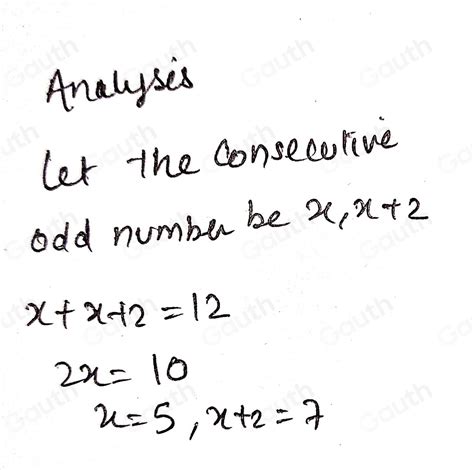 Analysis
Let the consecutive
odd number be x, x+2
x+x+2=12
2x= 10
x=5, x+2=7